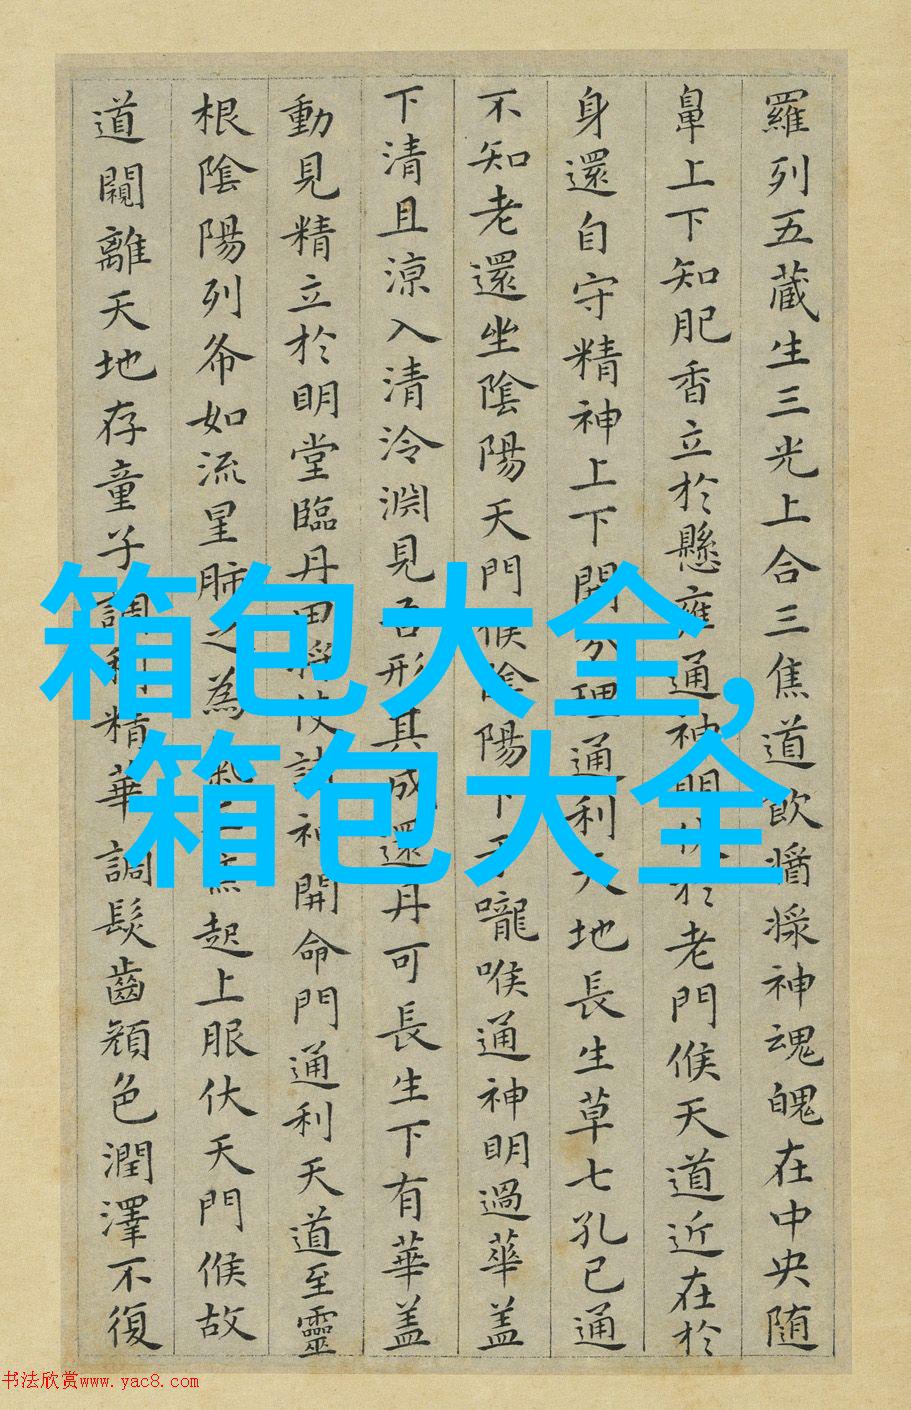 羅列五藏生三光上合三焦道飲醬漿神魂魄在中央随
鼻上下知肥香立於懸雍通神明伏於老門候天道近在於
身還自守精神上下開分理通利天地長生草七孔已通
不知老還坐陰陽天門候陰陽下于嚨喉通神明過華盖
下清且涼入清泠淵見吾形其成還丹可長生下有華盖
動見精立於明堂臨丹田将使諸神開命門通利天道至靈
根陰陽列布如流星肺之為氣三焦起上服伏天門候故
道闚離天地存童子調利精華調髮齒顔色潤澤不復
箱包大全,
箱包大全
书法欣赏www.yac8.com